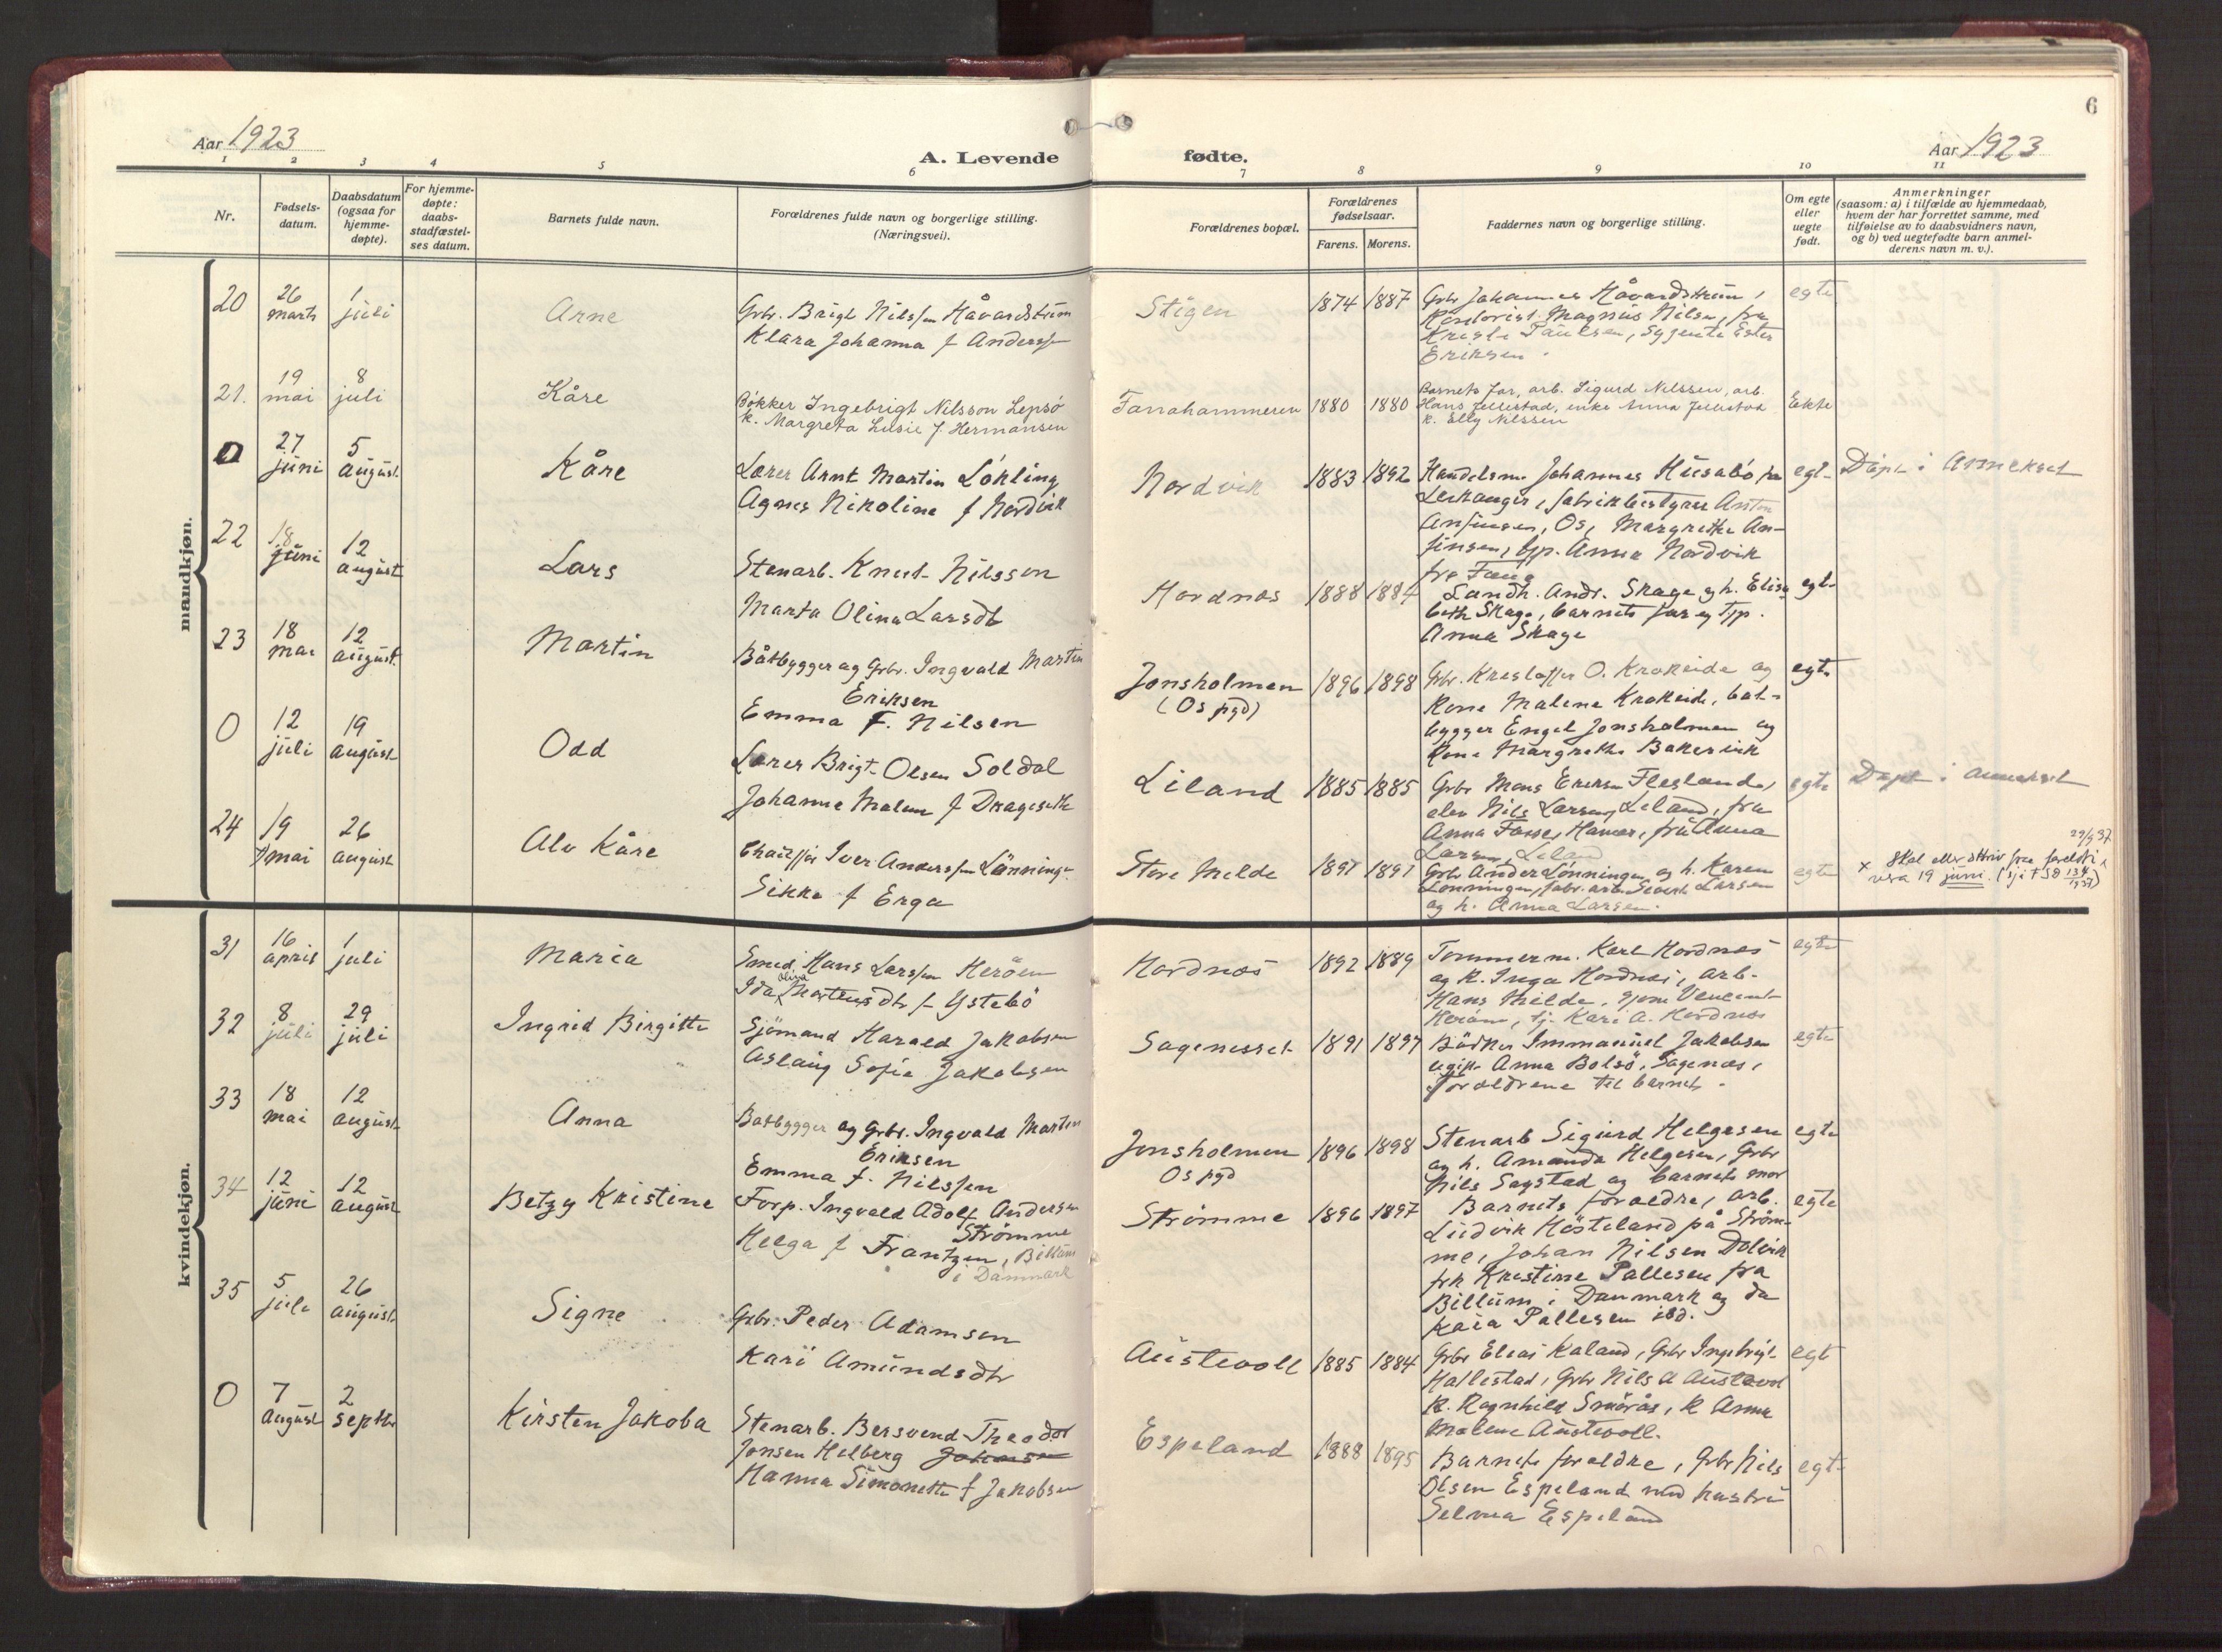 6
Aar 1923
A. Levende fødte.
Aar 1923
1 2 3 4 5 6 7 8 9 10 11
Nr.
Fødsels-
datum.
Daabsdatum
(ogsaa for
hjemme-
døpte).
For hjemme-
døpte:
daabs-
stadfæstel-
ses datum.
Barnets fulde navn.
Forældrenes fulde navn og borgerlige stilling.
(Næringsvei).
Forældrenes bopæl.
Forældrenes
fødselsaar.
Farens. Morens.
Faddernes navn og borgerlige stilling.
Om egte
eller
uegte
født.
Anmerkninger
(saasom: a) i tilfælde av hjemmedaab,
hvem der har forrettet samme, med
tilføielse av to daabsvidners navn,
og b) ved uegtefødte barn anmel-
derens navn m. v.).
mandkjøn.
20
26
marts
1
juli
Arne
Grbr. Brigt Nilssen Håvardstun
Klara Johanna f Anderssen
Stigen
1874 1887
Grbr Johannes Håvardstun,
Magnus Nilsen, fru
Paulsen, Ester
Eriksen.
egte
21.
19
mai
8
juli
Kåre
Bøkker Ingebrigt Nilsson Lepsø
k. Margreta Lusie f. Hermansen
Fanahammeren
1880 1880
Barnets far, arb. Sigurd Nilssen, arb.
Hans Jellestad, enke Anna Jellestad
k. Elly Nilssen
Ekte
0
27
juni
5
august
Kåre
Lærer Arnt Martin Løkling
Agnes Nikoline f Nordvik
Nordvik
1883 1892
Handelsm. Johannes Husabö fra
Leikanger, fabrikbestyrer Anton
Ansinsen, Os, Margrethe An-
sinsen, tjp. Anna Nordvik
fra Fana
egt-
Døpt i Annekset
22
18
juni
12
august
Lars
Stenarb. Knut Nilsson
Marta Olina Larsdt
Hordnæs
1888 1884
Landh. Andr. Skage og h. Elisa
beth Skage, barnets far og tjp.
Anna Skage
egt-
23
18
mai
12
august
Martin
Båtbygger og Grbr. Ingvald Martin
Eriksen
Emma F. Nilsen
Jonsholmen
(Os pgd)
1896 1898
Grbr. Kristoffer O. Krokeide og
Kone Malene Krokeide, båt-
bygger Engel Jonsholmen og
Kone Margrethe Bakervik
egte
0
12
juli
19
august
Odd
Lærer Brigt Olsen Soldal
Johanne Malene f Drageseth
Liland
1885 1885
Grbr Mons Ericsen Flesland,
elev Nils Larsen, Leland, fru
Anna Fosse, Hamar, fru Anna
Larsen, Leland
egte
Døpt i annekset
24
19
mai
26
august
Alv Kåre
Chauffør Iver Anderssen Lønningen
Sikke f Erga
Store Milde
1897 1897
Grbr Anders Lønningen og h. Karen
Lønningen, fabr. arb. Sivert Larsen
og h. Anna Larsen.
egte
29/9 37
x Skal etter fra
vera 19 juni.
kvindekjøn.
31
16
april
1
juli
Maria
Smed Hans Larssen Herøen
Olina
Ida Mortensdtr f Ystebö
Hordnæs
1892 1889
Tømmerm. Karl Hordnæs
og k. Inga Hordnæs, arb.
Hans Milde, Vencent
Herøen, tj. Kari A. Hordnæs
egte
32
8
juli
29
juli
Ingrid Birgitte
Sjömand Harald Jakobsen
Aslaug Sofie Jakobsen
Sagenesset
1891 1897
Bödker Immanuel Jakobsen
ugift Anna Bolsö, Sagenæs,
Forældrene til barnet.
egte
33
18
mai
12
august
Anna
Båtbygger og Grbr. Ingvald Martin
Eriksen
Emma f. Nilssen
Jonsholmen
Os pgd
1896 1898
Stenarb Sigurd Helgesen
og h. Amanda Helgesen, Grbr
Nils Søgstad og barnets mor
egte
34
12
juni
12
august
Betzy Kristine
Forp. Ingvald Adolf Andersen
Strømme
Helga f Frantzen, Billum
i Danmark
Strømme
1896 1897
Barnets Forældre, arb.
Ludvik Høsteland på Strøm-
me, Johan Nilsen Dolvik
frk Kristine Pallesen fra
Billum i Danmark og da
Kaia Pallesen ibd.
egte
35
5
juli
26
august
Signe
Grbr. Peder Adamsen
Kari Amundsdtr
Austevoll
1885 1884
Grbr Elias Kaland, Grbr Ingebrigt
Hallestad, Grbr Nils A Austevoll
K. Ragnhild Smörås, K Anna
Malene Austevoll.
egt
0
7
August
2
septbr
Kirsten Jakoba
Stenarb. Bersvend Theodor
Jonsen Helberg Johnsen
Hanna Simonette f Jakobsen
Espeland
1888 1895
Barnets forældre, Grbr Nils
Olsen Espeland med hustru
Selma Espeland
egt-